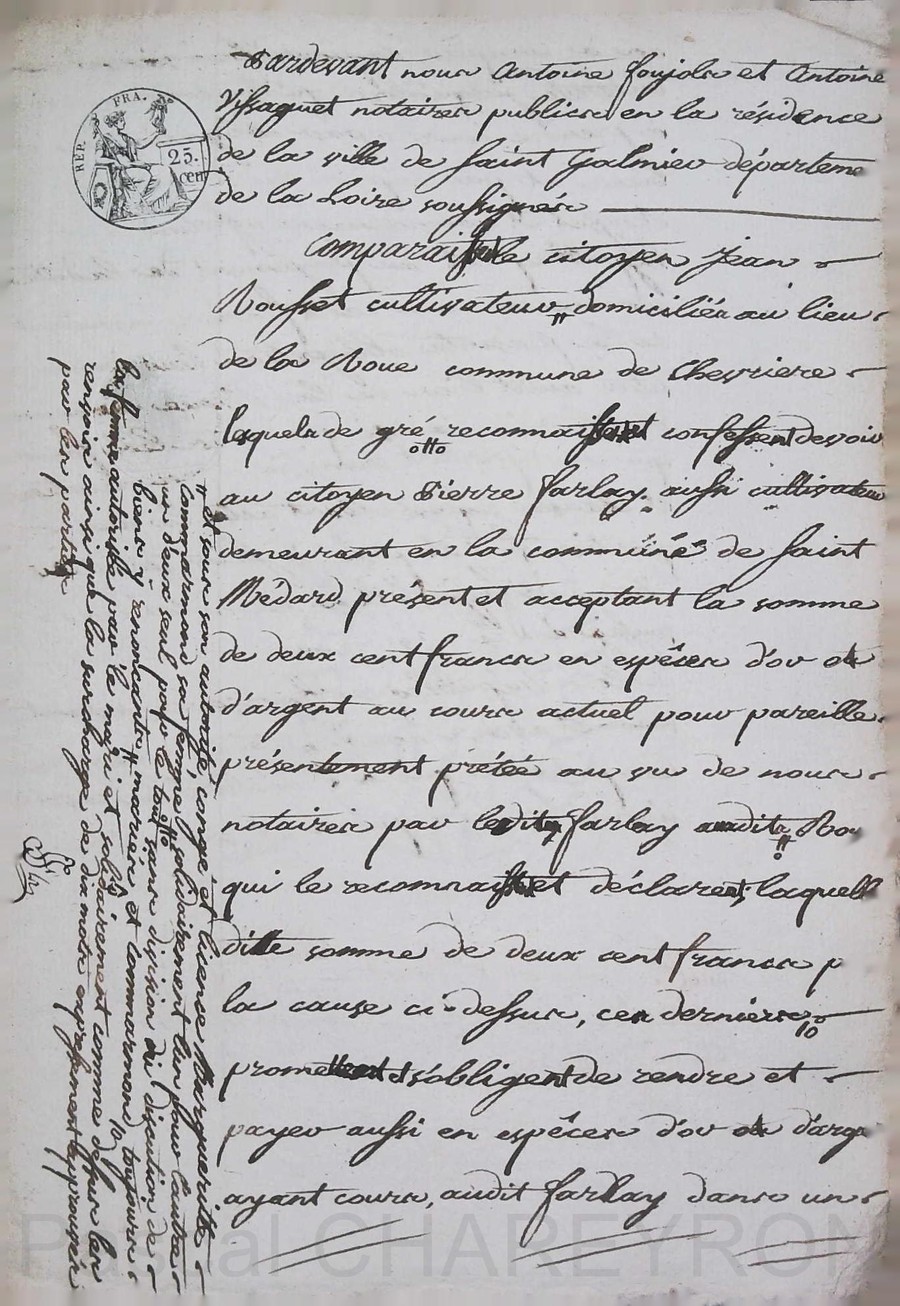 Pardevant nous Antoine foujols et Antoine
Yssaquet notaires publics en la résidence
de la ville de Saint Galmier départeme
de la Loire soussignés
REP. FRA.
25.
cen
Comparaissent le citoyen Jean
Rousset cultivateur " domiciliés au lieu
de la Roue commune de Chevriere
lesquels de gré reconnaissent et confessent devoir
au citoyen Pierre farlay aussi cultivateur
demeurant en la commune de Saint
Médard présent et acceptant la somme
de deux cent francs en espéces d'or ou
d'argent au cours actuel pour pareille
présentement prétée au vu de nous
notaires par ledit farlay audits Rou
qui le reconnaissent et déclarent, laquelle
ditte somme de deux cent francs p
la cause ci-dessus, ces derniers
promettent et s'obligent de rendre et
payer aussi en espéces d'or ou d'arge
ayant cours, audit farlay dans un
" et sous son autorité congé et licence Marguerite
Commarmond sa femme solidairement l'un pour l'autre
un d'eux seul pour le tout sans division ni discution de
biens y renonçants " mariés et Commarmond toujours
la femme autorisée par le mari et solidairement comme dessus les
renvoir ainsi que la surcharge de dix mots expressement approuvés
par les parties
Pascal CHAREYRON